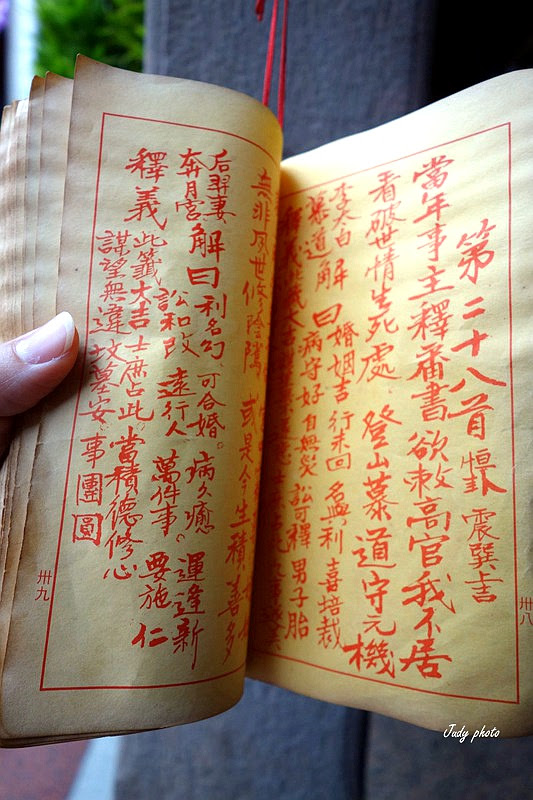 第二十八首 恒卦 震巽上吉
當年事主釋番書欲敕高官我不居
看破世情生死處 登山慕道守元機
李太白
慕道
解曰 婚姻吉 行未回 名利 喜培裁
病守好 自無災 訟可釋 男子胎
釋義此籤大吉
卅八
無非夙世修陰隲 或是今生積善多
后羿妻
奔月宮
解曰 利名勾 可合婚。病久癒 運逢新
訟和改 遠行人 萬件事。要施仁
釋義 此籤大吉 士庶占此。當積德修心
謀望無違 墳墓安。事團圓
卅九
Judy photo